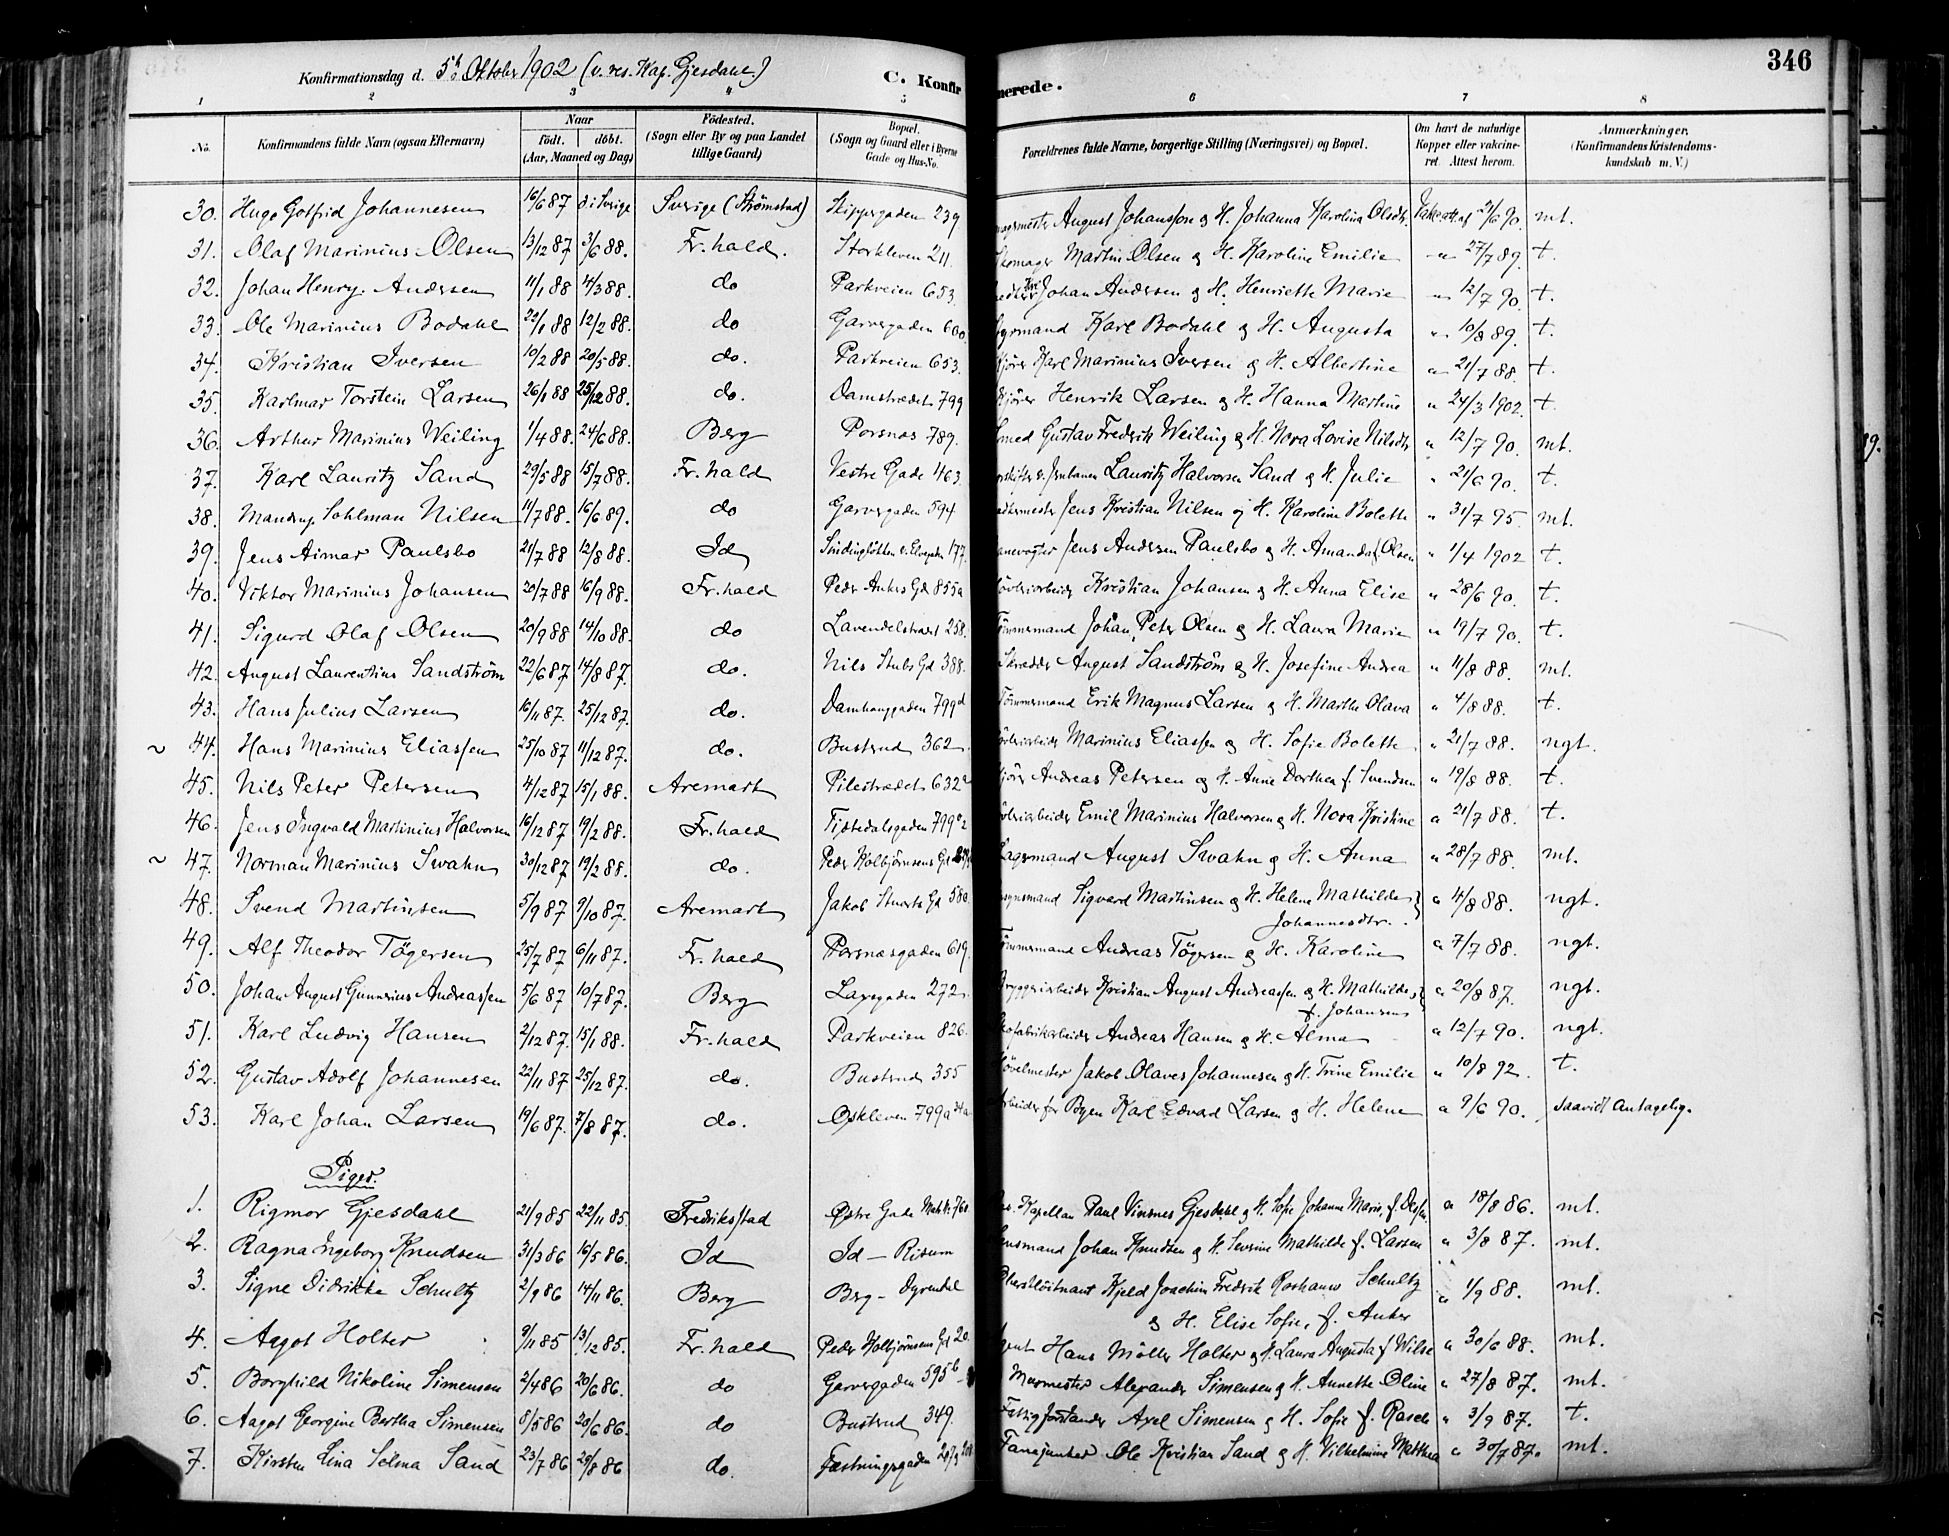 346
Konfirmationsdag d. 5te Oktober 1902 (v. res. Kap. Gjesdahl.)
C. Konfirmerede.
1 2 3 4 5 6 7 8
No. Konfirmandens fulde Navn (ogsaa Efternavn) Naar födt. döbt. (Aar, Maaned og Dag) Födested. (Sogn eller By og paa Landet tillige Gaard) Bopæl. (Sogn og Gaard eller i Byerne Gade og Hus-No. Forældrenes fulde Navne, borgerlige Stilling (Næringsvei) og Bopæl. Om havt de naturlige Kopper eller vakcineret. Attest herom. Anmærkninger. (Konfirmandens Kristendomskundskab m. V.)
30. Hugo Gotfrid Johannesen 16/6 87 d. i Sverige Sverige (Strømstad) Skippergaden 239 August Johansson & H. Johanna Karolina Olsdtr. Vakc. att. af 2/6 90. mt.
31. Olaf Marinius Olsen 13/12 87 3/6 88. Fr.hald. Storkleven 211. Skomager Martin Olsen & H. Karoline Emilie " 27/7 89. t.
32. Johan Henry Andersen 11/1 88 14/3 88. do Parkveien 653. Johan Andersen & H. Henriette Marie " 12/7 90. t.
33. Ole Marinius Bodahl 22/1 88 12/2 88. do Garvergaden 600 Styrmand Karl Bodahl & H. Augusta " 10/8 89. t.
34. Kristian Iversen 10/2 88 20/5 88. do. Parkveien 653. Kjører Karl Marinius Iversen & H. Albertine " 21/7 88. t.
35. Karlmar Torstein Larsen 26/1 88 25/12 88. do. Damstrædet 799 Kjører Henrik Larsen & H. Hanna Martine " 24/3 1902. t.
36. Arthur Marinius Weiling 1/4 88. 24/6 88. Berg Porsnæs 789. Smed Gustav Fredrik Weiling & H. Nora Lovise Nilsdtr " 12/7 90. mt.
37. Karl Lauritz Sand 29/5 88 15/7 88. Fr.hald Vestre Gade 463. v. Jernbanen Lauritz Halvorsen Sand & H. Julie " 21/6 90. t.
38. Mandrup Sohlman Nilsen 11/7 88. 16/6 89. do Garvergaden 594 Jens Kristian Nilsen og H. Karoline Bolette " 31/7 95. mt.
39. Jens Aimar Paulsbo 21/7 88 12/8 88. Id 177. Banevogter Jens Andersen Paulsbo & H. Amanda f. Olsen " 1/4 1902 t.
40. Viktor Marinius Johansen 20/7 88 16/9 88. Fr.hald Peder Ankers Gd 855a Høvleriarbeider Kristian Johansen & H. Anna Elise " 28/6 90. t.
41. Sigurd Olaf Olsen 20/9 88 14/10 88. do Lavendelstræt 258. Tømmermand Johan Peter Olsen & H. Laura Marie " 19/7 90. t.
42. August Laurentius Sandström 22/6 87 14/8 87. do. Nils Stubs Gd 388. Skrædder August Sandström & H. Josefine Andrea " 11/8 88. mt.
43. Hans Julius Larsen 16/11 87. 25/12 87. do. Damhauggaden 799d Tømmermand Erik Magnus Larsen & H. Marthe Olava " 4/8 88. t.
~ 44. Hans Marinius Eliassen 25/10 87 11/12 87. do. Busterud 362. Høvleriarbeider Marinius Eliassen & H. Sofie Bolette " 21/7 88. ngt.
45. Nils Peter Petersen 4/12 87 15/1 88. Aremark Pilestrædet 632a Kjører Andreas Petersen & H. Anne Dorthea f. Svendsen " 19/8 88. t.
46. Jens Ingvald Martinius Halvorsen 16/12 87 19/2 88. Fr.hald Tistedalsgaden 799e2 Høvleriarbeider Emil Marinius Halvorsen & H. Nora Kristine " 21/7 88. t.
~ 47. Norman Marinius Swahn 30/12 87 19/2 88. do. Peder Kolbjørnsens Gd Lagermand August Swahn & H. Anna " 28/7 88. mt.
48. Svend Martinsen 5/9 87 9/10 87. Aremark Jakob Stuarts Gd 580. Sigvard Martinsen & H. Helene Mathilde Johannesdtr. " 11/8 88. ngt.
49. Alf Theodor Tögersen 25/7 87 6/11 87. Fr.hald Porsnæsgaden 619. Tømmermand Andreas Tögersen & H. Karoline " 7/7 88. ngt.
50. Johan August Gunerius Andreassen 5/6 87 10/7 87. Berg Laxegaden 272. Bryggeriarbeider Kristian August Andreassen & H. Mathilde, f. Johansen " 20/8 87. ngt.
51. Karl Ludvig Hansen 2/12 87. 15/1 88. Fr.hald Parkveien 826. Skofabrikarbeider Andreas Hansen & H. Alma " 12/7 90. ngt.
52. Gustav Adolf Johannesen 22/11 87 25/12 87. do. Busterud 355 Høvelmester Jakob Olaves Johannesen & H. Trine Emilie " 10/8 92. t.
53. Karl Johan Larsen 19/6 87. 7/8 87. do. Øskleven 799a Arbeider for Byen Karl Edvard Larsen & H. Helene " 9/6 90. saavidt Antagelig.
Piger.
1. Rigmor Gjesdahl 21/9 85 22/11 85. Fredriksstad Østre Gade Matr. No 760. res. Kapellan Paul Vinsnes Gjesdahl & H. Sofie Johanne Marie, f. " 18/8 86. mt.
2. Ragna Ingeborg Knudsen 31/3 86 16/5 86. Id Id - Risum Lensmand Johan Knudsen & H. Severine Mathilde f. Larsen " 3/8 87. mt.
3. Signe Didrikke Schultz 2/9 86 14/11 86. Berg Berg - Dyrendal Oberstløitnant Kjeld Joachim Fredrik Roshauw Schultz & H. Elise Sofie, f. Anker " 1/9 88. mt.
4. Aagot Holter 9/11 85 13/12 85. Fr.hald Peder Kolbjørnsens Gd 20. Agent Hans Möller Holter & H. Laura Augusta f. Wilse " 30/6 88. mt.
5. Borghild Nikoline Simensen 2/4 86 20/6 86. do Garvergaden 595b Murmester Alexander Simensen & H. Annette Oline " 27/8 87. mt.
6. Aagot Georgine Bertha Simensen 8/5 86 20/6 86. do Busterud 349. Fattigforstander Axel Simensen & H. Sofie f. Rasch " 3/9 87. t.
7. Kirsten Lina Selma Sand 23/7 86 29/8 86 do. Fæstningsgaden Fanejunker Ole Kristian Sand & H. Vilhelmine Matthea " 30/7 87. mt.